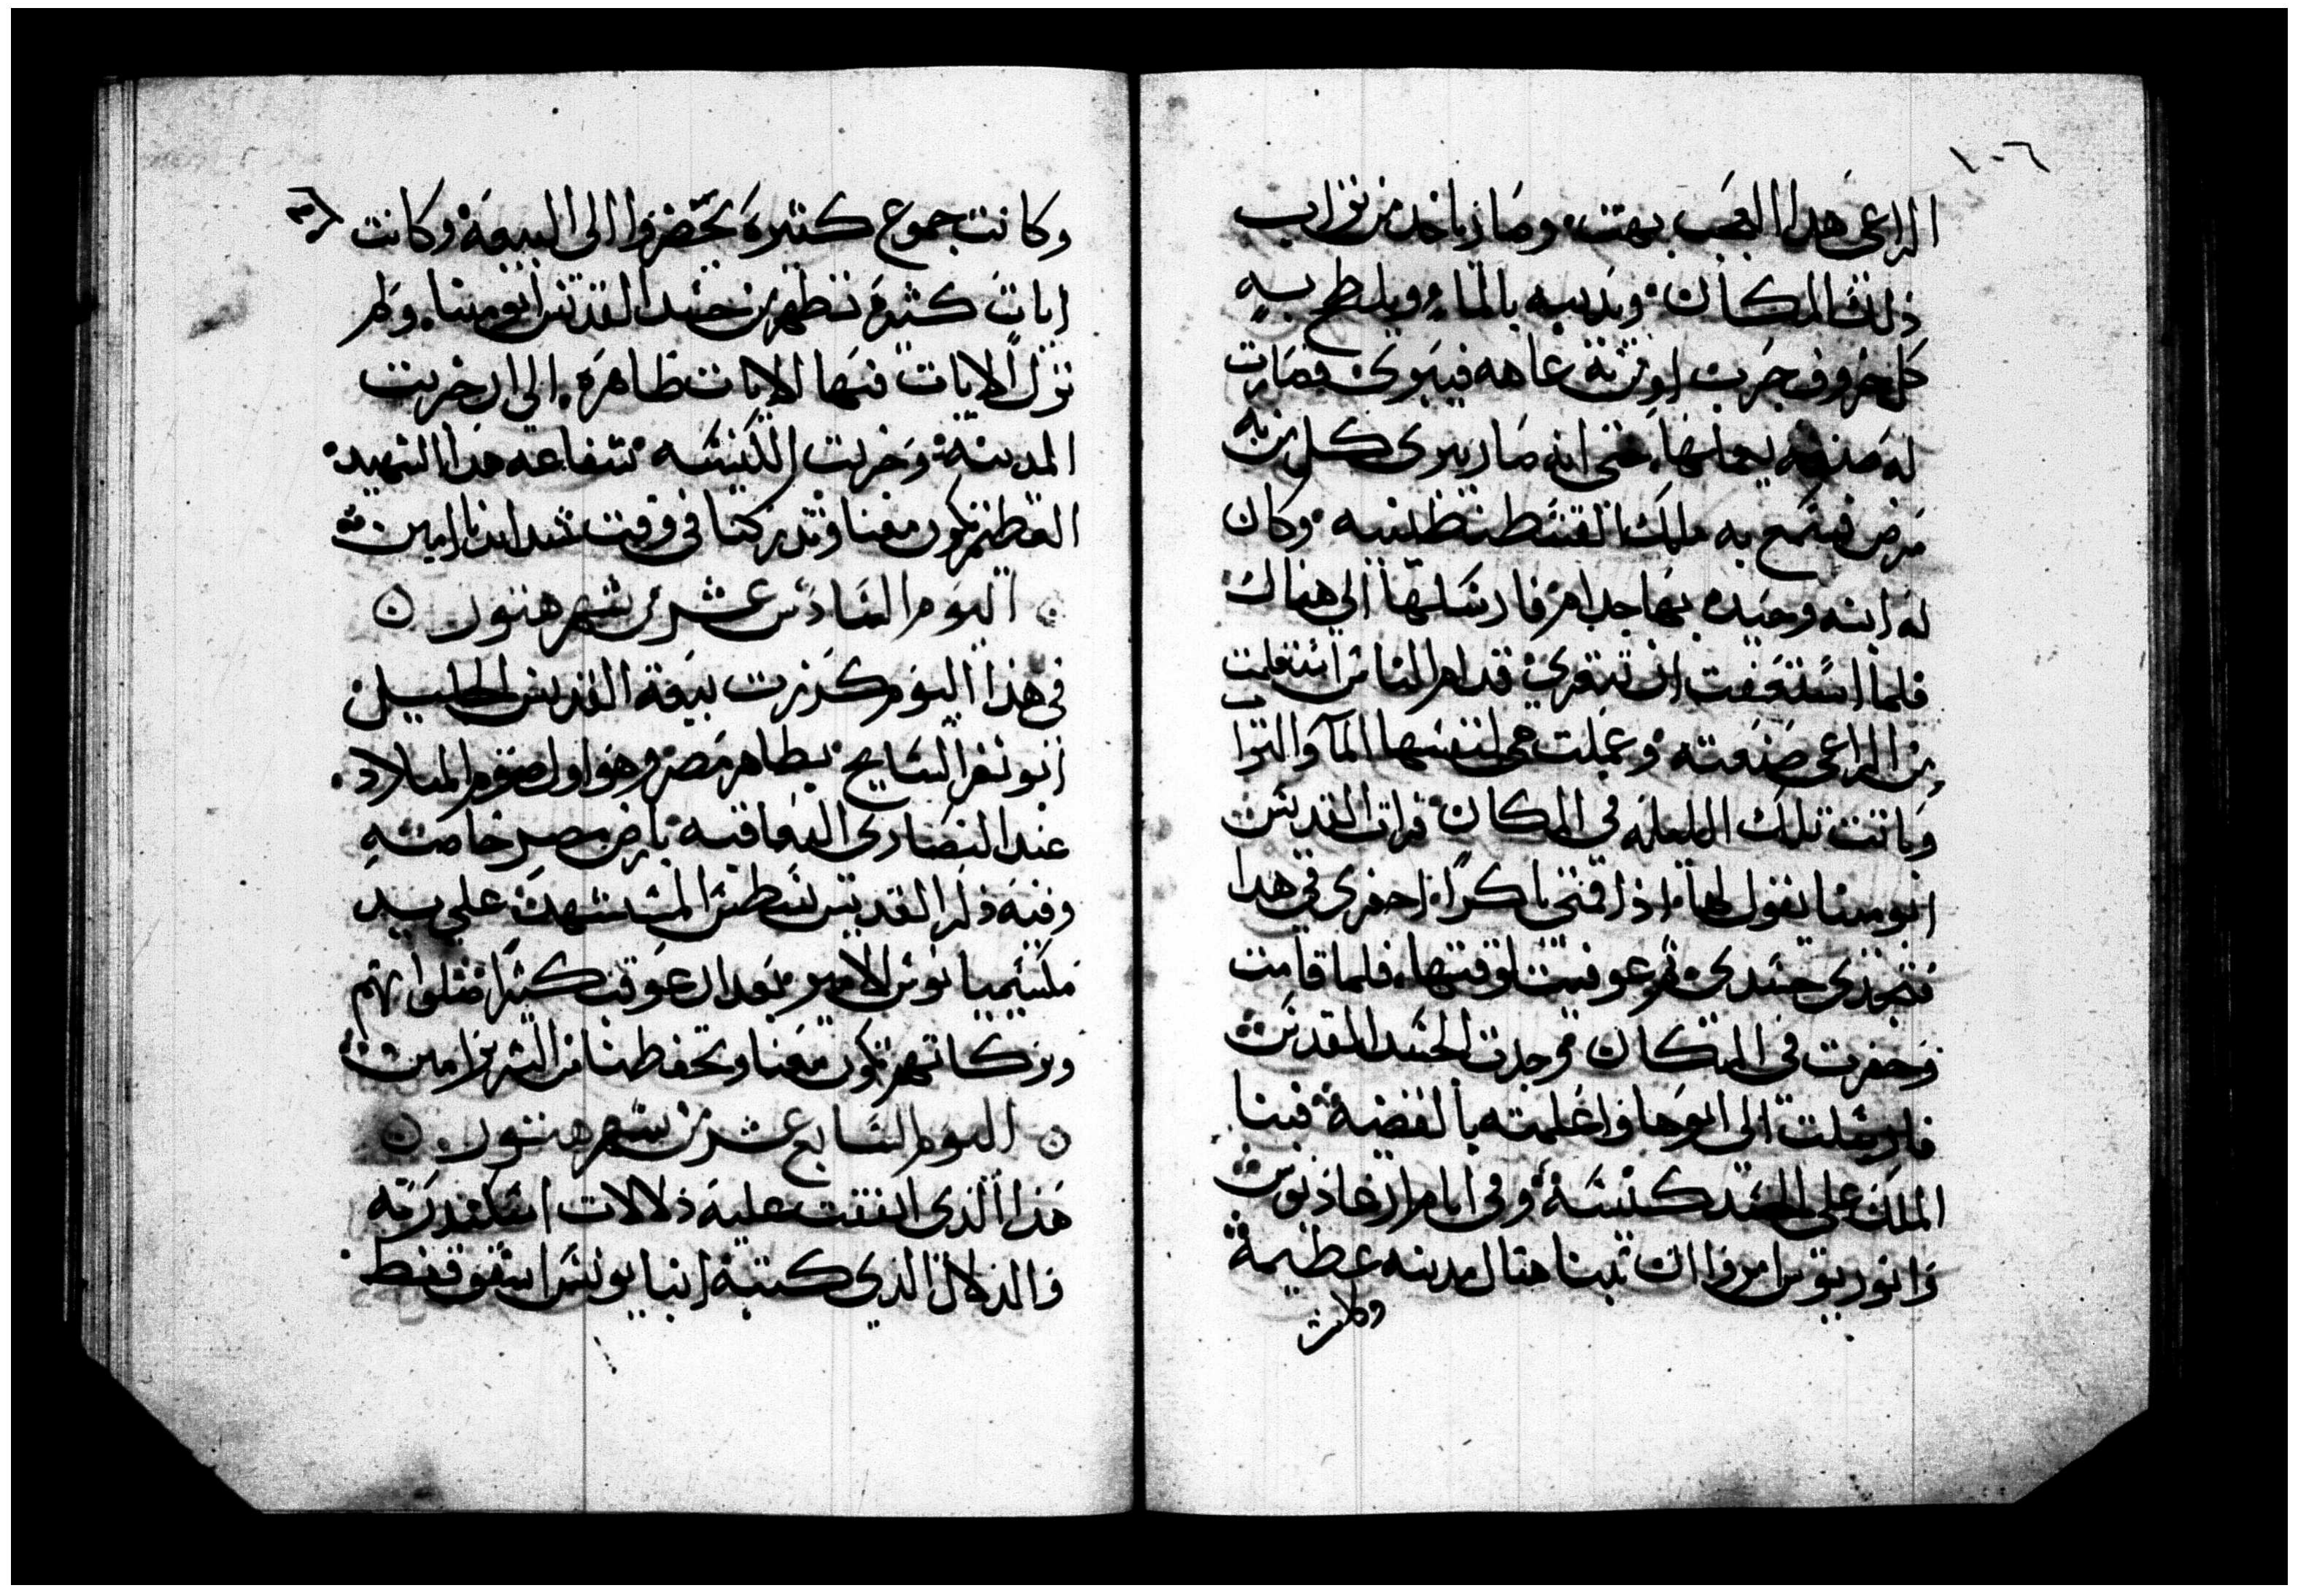 ١٠٦
الراعي هدا العجب بهت وصار ياخد من تراب
ذلك المكان ويديبه بالماء ويلطخ به
كل خروف جرب او من به عاهه فيبرى فصارت
له صنعه يعملها حتى انه صار يبرى كل من به
مرض فسمع به ملك القسطنطينيه وكان
له ابنه وحيده بها جدام فارسلها الي هناك
فلما استعفت ان تتعرى قدام الناس استعلمت
من الراعي صنعته وعملت هي لنفسها الما والترا
وباتت تلك الليله في المكان فرات القديس
ابو مينا يقول لها اذا قمتي باكرا احفري في هدا
فتجدي جسدي ثم عوفيت لوقتها فلما قامت
وحفرت في المكان فوجدت الجسد المقدس
فارسلت الى ابوها واعلمته بالقضية فبنا
الملك على الجسد كنيسة وفي ايام ارغاديوس
وانوريوس امروا ان تبنا هنا ل مدينه عظيمة
وكانت
وكانت جموع كتيرة يحضروا الى البيعة وكانت
ايات كثيرة تظهر من جسد القديس ابو مينا ولم
تزل الايات فيها الايات ظاهره الي ان خربت
المدينة وخربت الكنيسه شفاعه هدا الشهيد
العظيم تكون معنا وتدركنا في وقت شدايدنا امين
اليوم السادس عشر من شهر هتور
في هذا اليوم كرزت بيعة القديس الجليل
ابو نفر السايح بظاهر مصر وهو اول صوم الميلاد
عند النصارى اليعاقبه بارض مصر خاصه
وفيه ذكر القديس نسطر المستشهد على يد
مكسيميانوس الامير بعد ان عوقب كثيرا صلواتهم
وبركاتهم تكون معنا وتحفظنا من الشرير امين
اليوم السابع عشر من شهر هتور
هذا الذي اتفقت عليه دلالات اسكندريه
والدلال الذي كتبه انبا يونس اسقف قفط